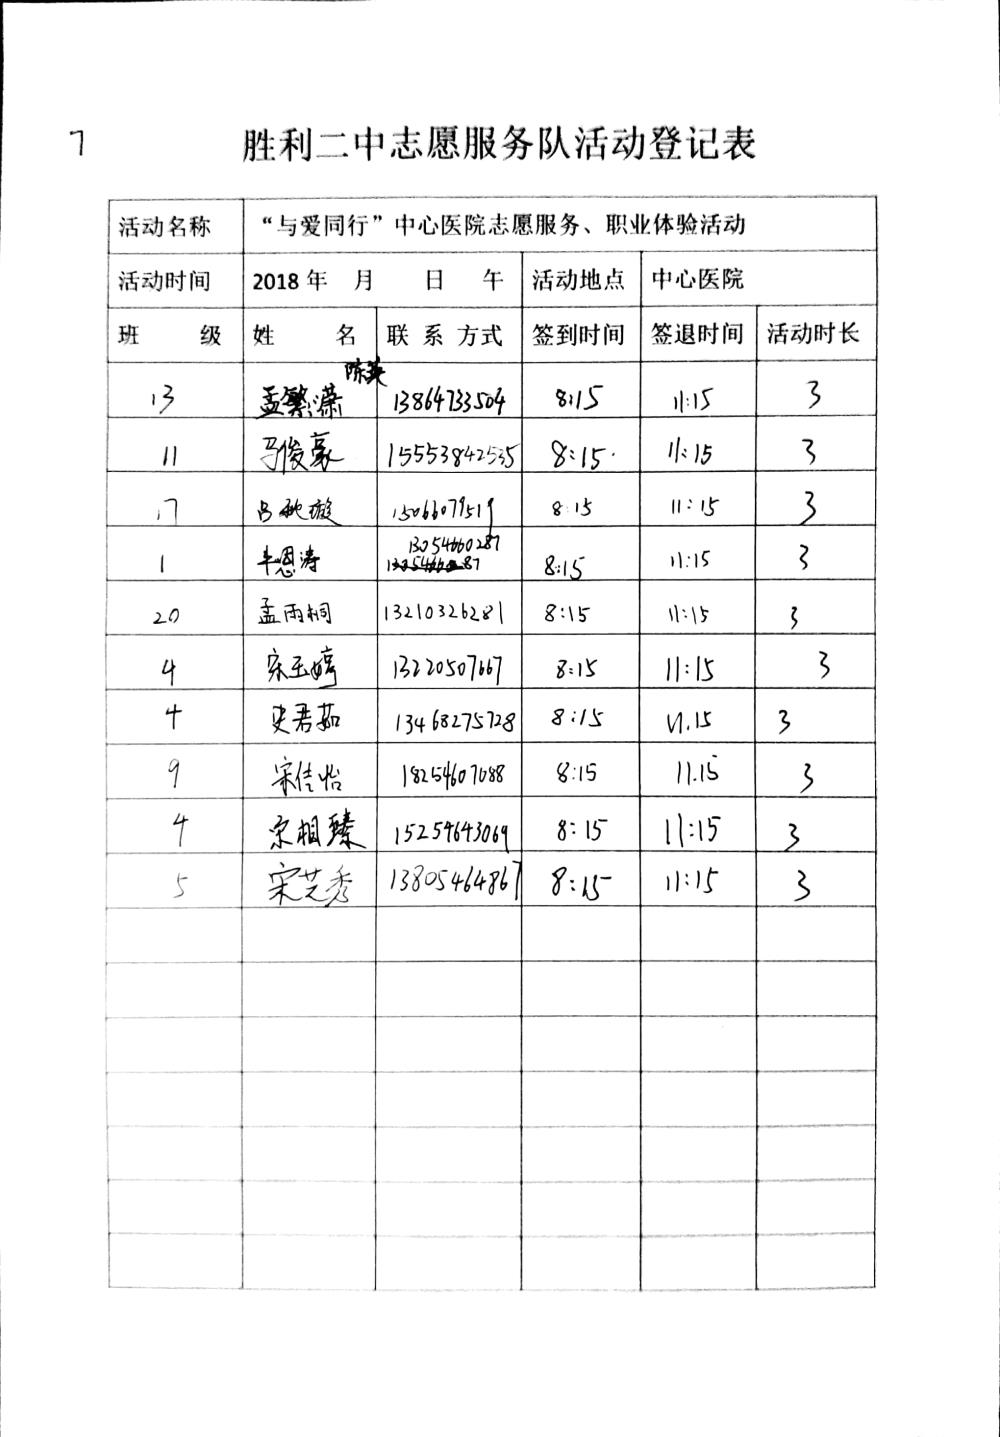 7
胜利二中志愿服务队活动登记表
活动名称 “与爱同行”中心医院志愿服务、职业体验活动
活动时间 2018年 月 日 午 活动地点 中心医院
班 级 姓 名 联系方式 签到时间 签退时间 活动时长
陈英
13 孟繁潆 13864733504 8:15 11:15 3
11 马俊豪 15553842535 8:15 11:15 3
17 吕秋璇 15066079519 8:15 11:15 3
13054660287
1 牟恩涛 8:15 11:15 3
20 孟雨桐 13210326281 8:15 11:15 3
4 宋玉婷 13220507667 8:15 11:15 3
4 史君茹 13468275728 8:15 11.15 3
9 宋佳怡 18254607088 8:15 11.15 3
4 宋相臻 15254643069 8:15 11:15 3
5 宋芝秀 13805464867 8:15 11:15 3